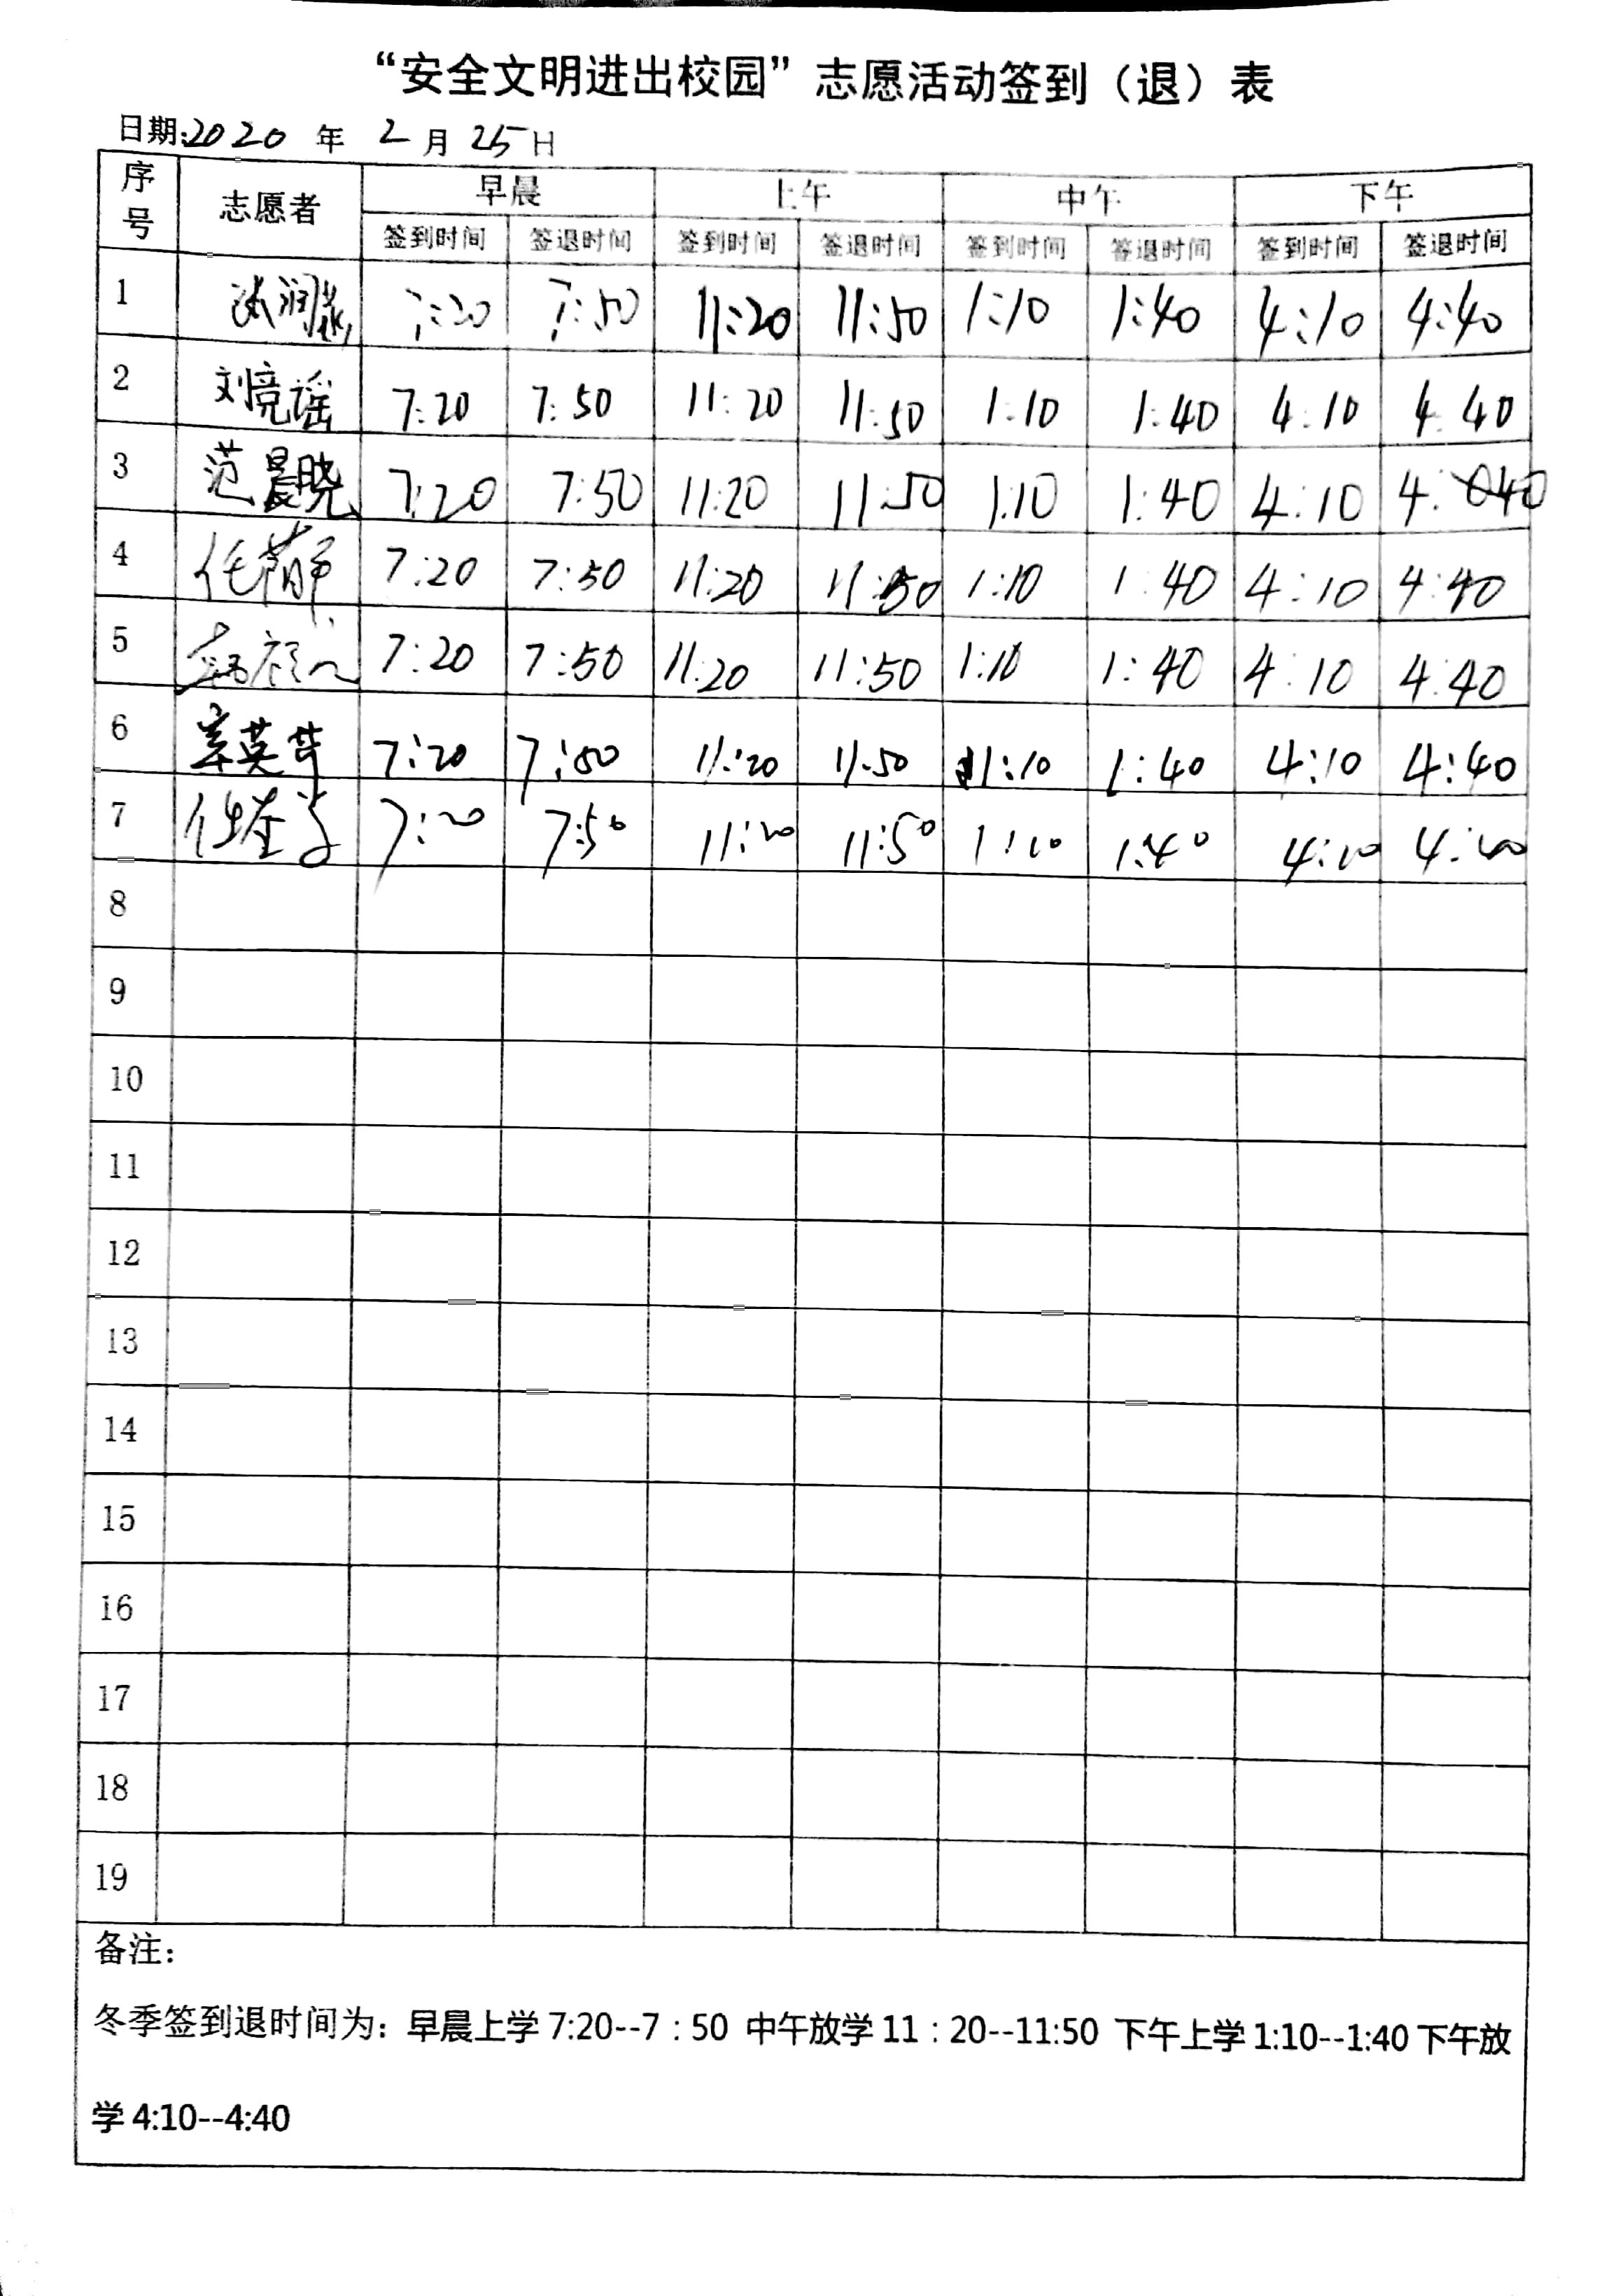 “安全文明进出校园”志愿活动签到（退）表
日期:2020 年 2 月 25 日
序号 志愿者 早晨 上午 中午 下午
签到时间 签退时间 签到时间 签退时间 签到时间 签退时间 签到时间 签退时间
1 7:20 7:50 11:20 11:50 1:10 1:40 4:10 4:40
2 刘竞谣 7:20 7:50 11:20 11:50 1:10 1:40 4:10 4:40
3 范晨晓 7:20 7:50 11:20 11:50 1:10 1:40 4:10 4:40
4 7:20 7:50 11:20 11:50 1:10 1:40 4:10 4:40
5 7:20 7:50 11:20 11:50 1:10 1:40 4:10 4:40
6 7:20 7:50 11:20 11:50 1:10 1:40 4:10 4:40
7 7:20 7:50 11:20 11:50 1:10 1:40 4:10 4:40
8
9
10
11
12
13
14
15
16
17
18
19
备注：
冬季签到退时间为：早晨上学 7:20--7：50 中午放学 11：20--11:50 下午上学 1:10--1:40 下午放
学 4:10--4:40